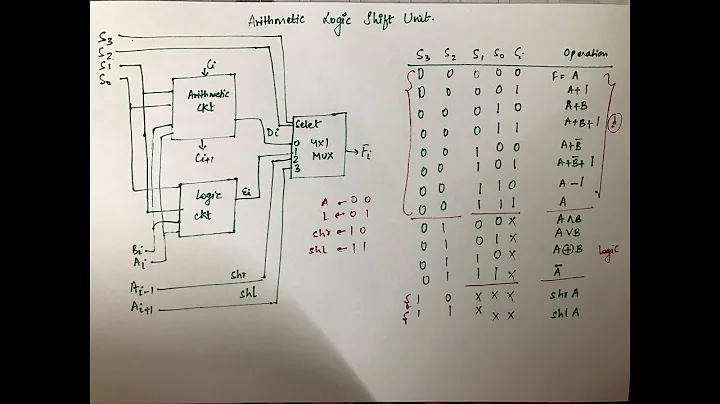 Arithmetic Logic Shift Unit.
S3
S2
S1
S0
Ci
Arithmetic
Ckt
Ci+1
Di
Select
0
1
2
3
4x1
MUX
Fi
Logic
ckt
Ei
Bi
Ai
Ai-1
shr
Ai+1
shl
A ← 0 0
L ← 0 1
shr ← 1 0
shl ← 1 1
S3 S2 S1 S0 Ci Operation
0 0 0 0 0 F = A
0 0 0 0 1 A+1
0 0 0 1 0 A+B
0 0 0 1 1 A+B+1
0 0 1 0 0 A+B̅
0 0 1 0 1 A+B̅+1
0 0 1 1 0 A-1
0 0 1 1 1 A
A
0 1 0 0 X A∧B
0 1 0 1 X A∨B
0 1 1 0 X A⊕B
0 1 1 1 X A̅
Logic
1 0 X X X shr A
1 1 X X X shl A